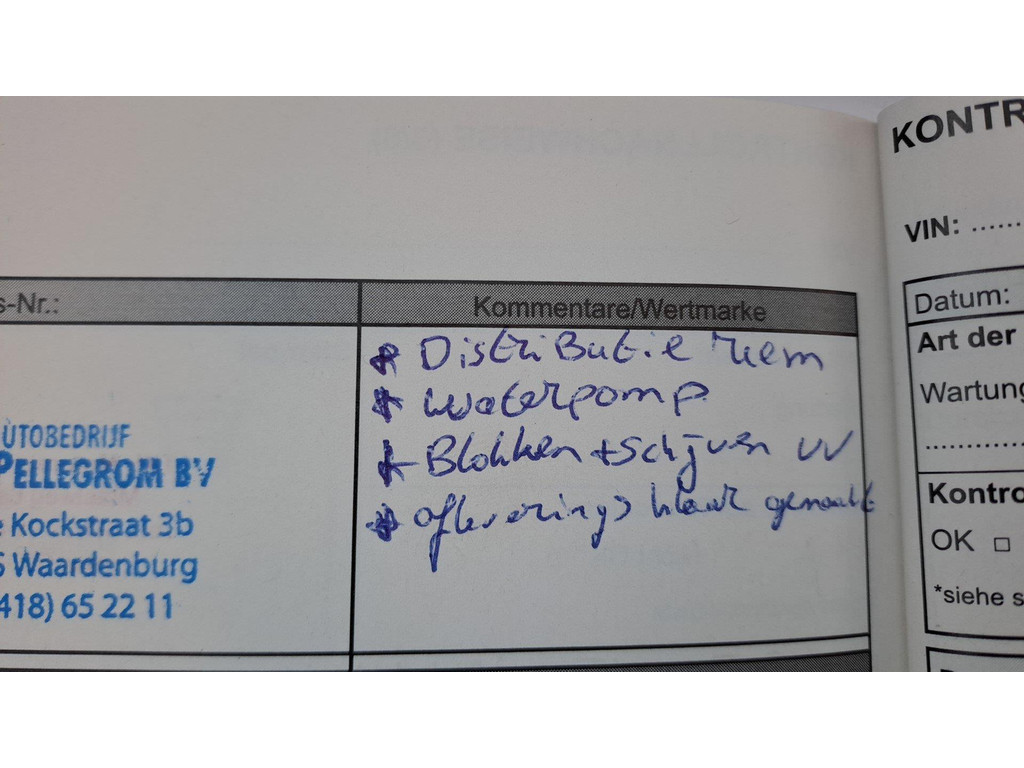 KONTR
VIN: ......
s-Nr.:
Kommentare/Wertmarke
* Distributie riem
* Waterpomp
* Blokken + schijven VV
* afleverings klaar gemaakt
UTOBEDRIJF
PELLEGROM BV
e Kockstraat 3b
S Waardenburg
418) 65 22 11
Datum:
Art der
Wartung
Kontro
OK □
*siehe s